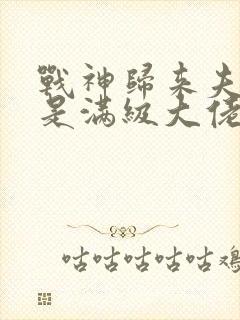 戰神歸來夫
是滿級大佬
咕咕咕咕咕雞